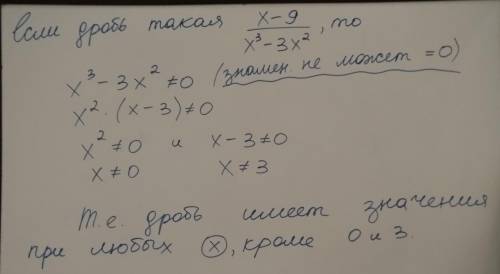 Если дробь такая x-9/x³-3x², то
x³-3x²≠0 (знамен. не может =0)
x²·(x-3)≠0
x²≠0 и x-3≠0
x≠0 x≠3
Т.е. дробь имеет значения
при любых x, кроме 0 и 3.